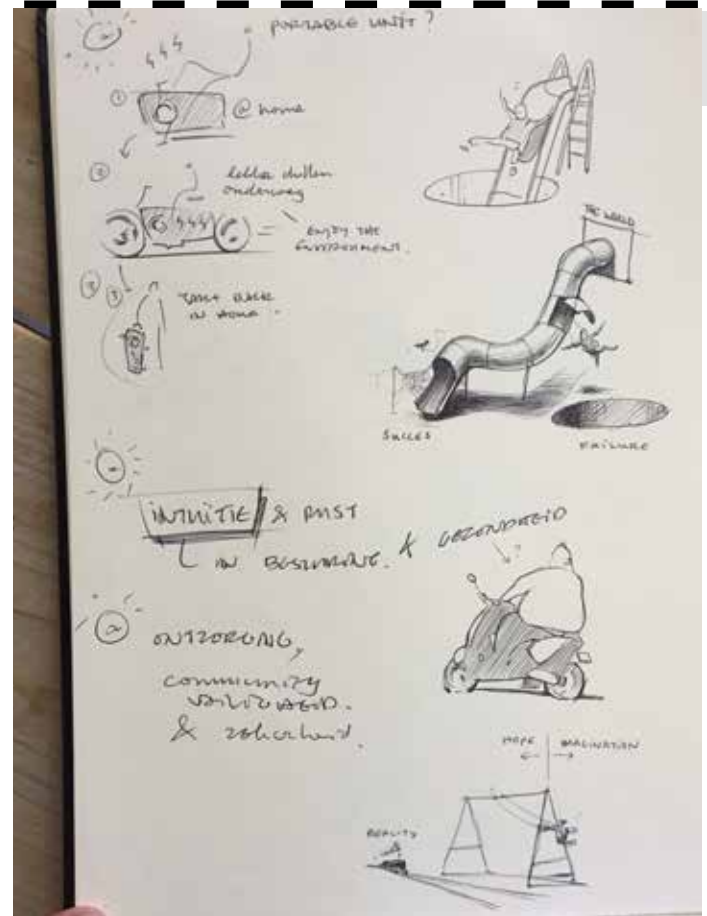 PORTABLE UNIT?
①
@ home
②
lekker chillen
onderweg
=
ENJOY THE
ENVIRONMENT.
③
TAKE BACK
IN HOME.
THE WORLD
SUCCES
FAILURE
INTUITIE & RUST
IN BESTURING. & GEZONDHEID
?
ONTZORGING,
community
VEILIGHEID.
& zekerheid.
HOPE
IMAGINATION
REALITY